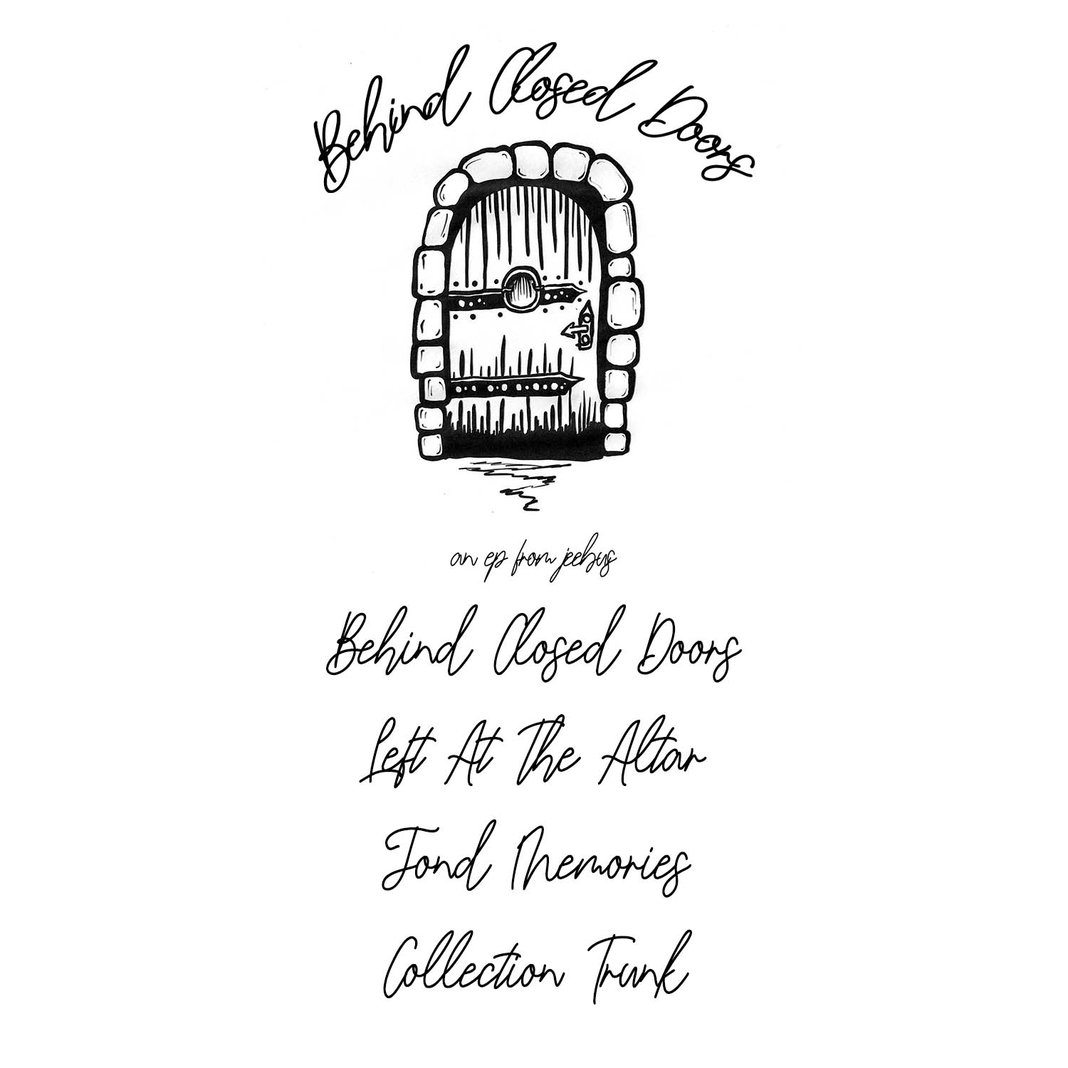 Behind Closed Doors
an ep from jeebus
Behind Closed Doors
Left At The Altar
Fond Memories
Collection Trunk